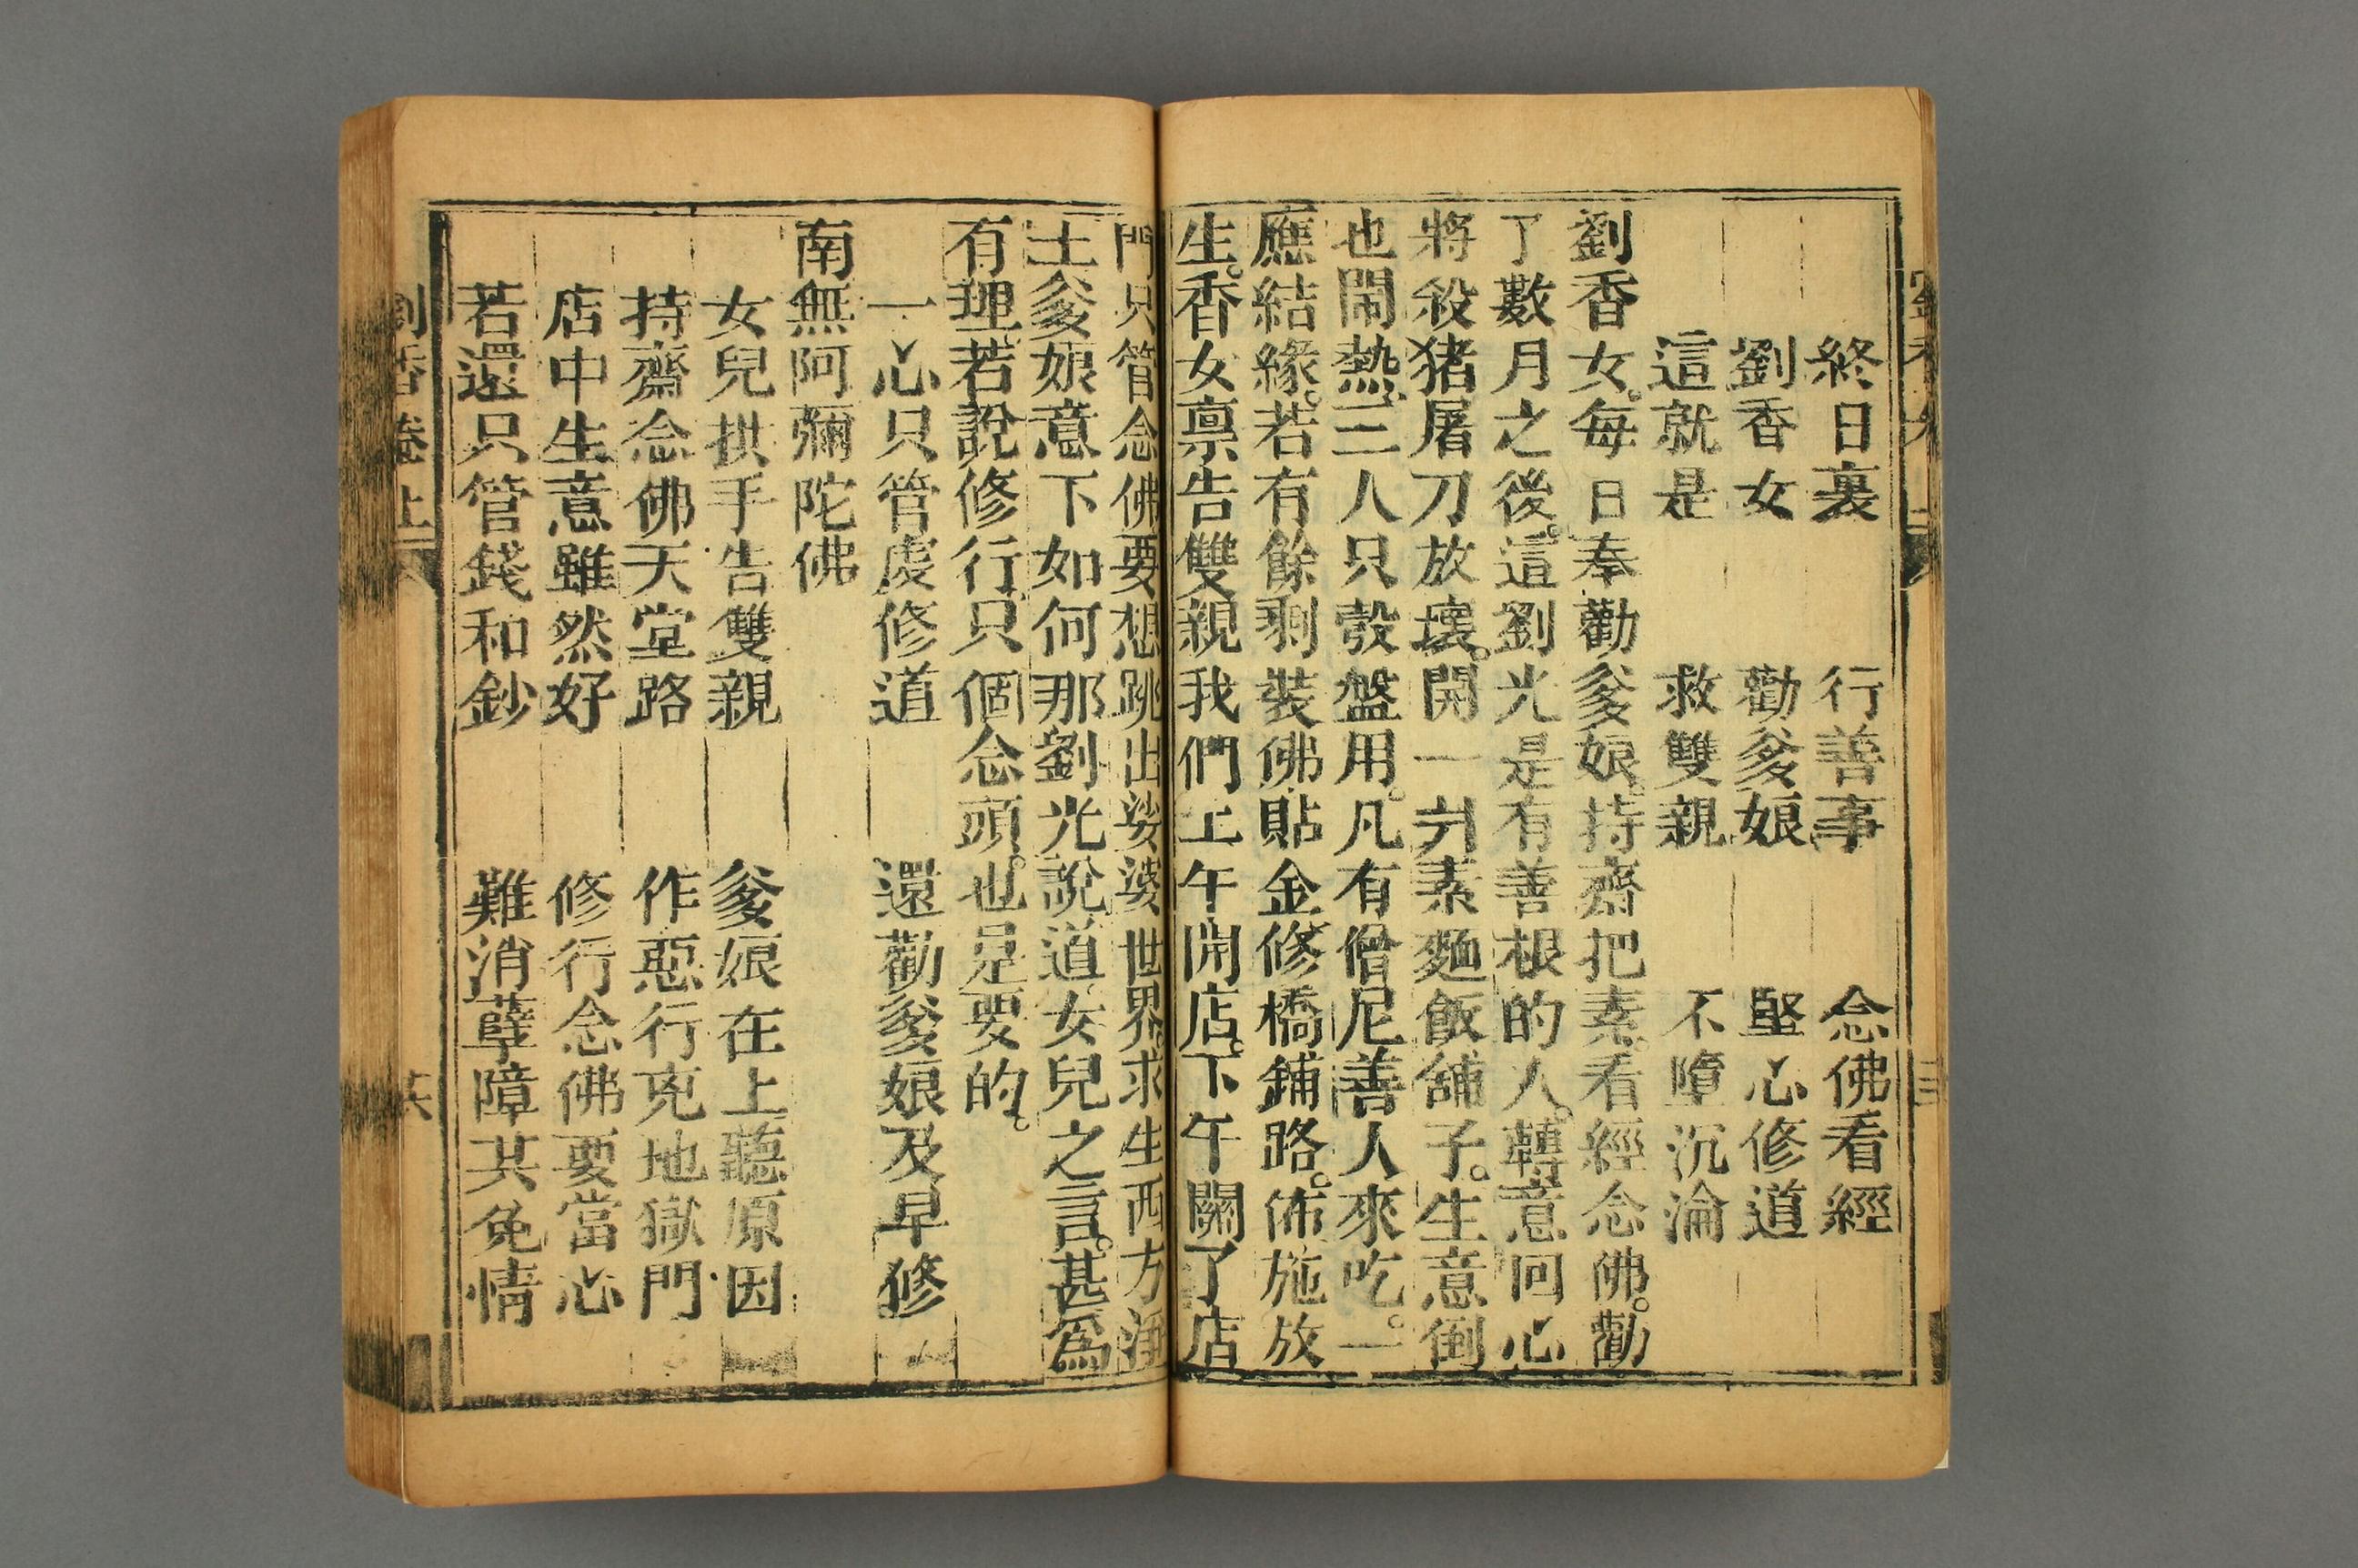 終日裏 行善事 念佛看經
劉香女 勸爹娘 堅心修道
這就是 救雙親 不墮沉淪
劉香女。每日奉勸爹娘。持齋把素。看經念佛。勸
了數月之後。這劉光是有善根的人。轉意回心
將殺猪屠刀放壞。開一爿素麵飯舖子。生意倒
也鬧熱。三人只彀盤用。凡有僧尼善人來吃。一
應結緣。若有餘剩裝佛貼金修橋鋪路。佈施放
生。香女禀告雙親我們上午開店。下午關了店
門只管念佛要想跳出娑婆世界。求生西方淨
土爹娘意下如何那劉光說道。女兒之言。甚爲
有理。若說修行只個念頭。也是要的。
一心只管虔修道 還勸爹娘及早修
南無阿彌陀佛
女兒拱手告雙親 爹娘在上聽原因
持齋念佛天堂路 作惡行兇地獄門
店中生意雖然好 修行念佛要當心
若還只管錢和鈔 難消孽障其免情
劉香卷上